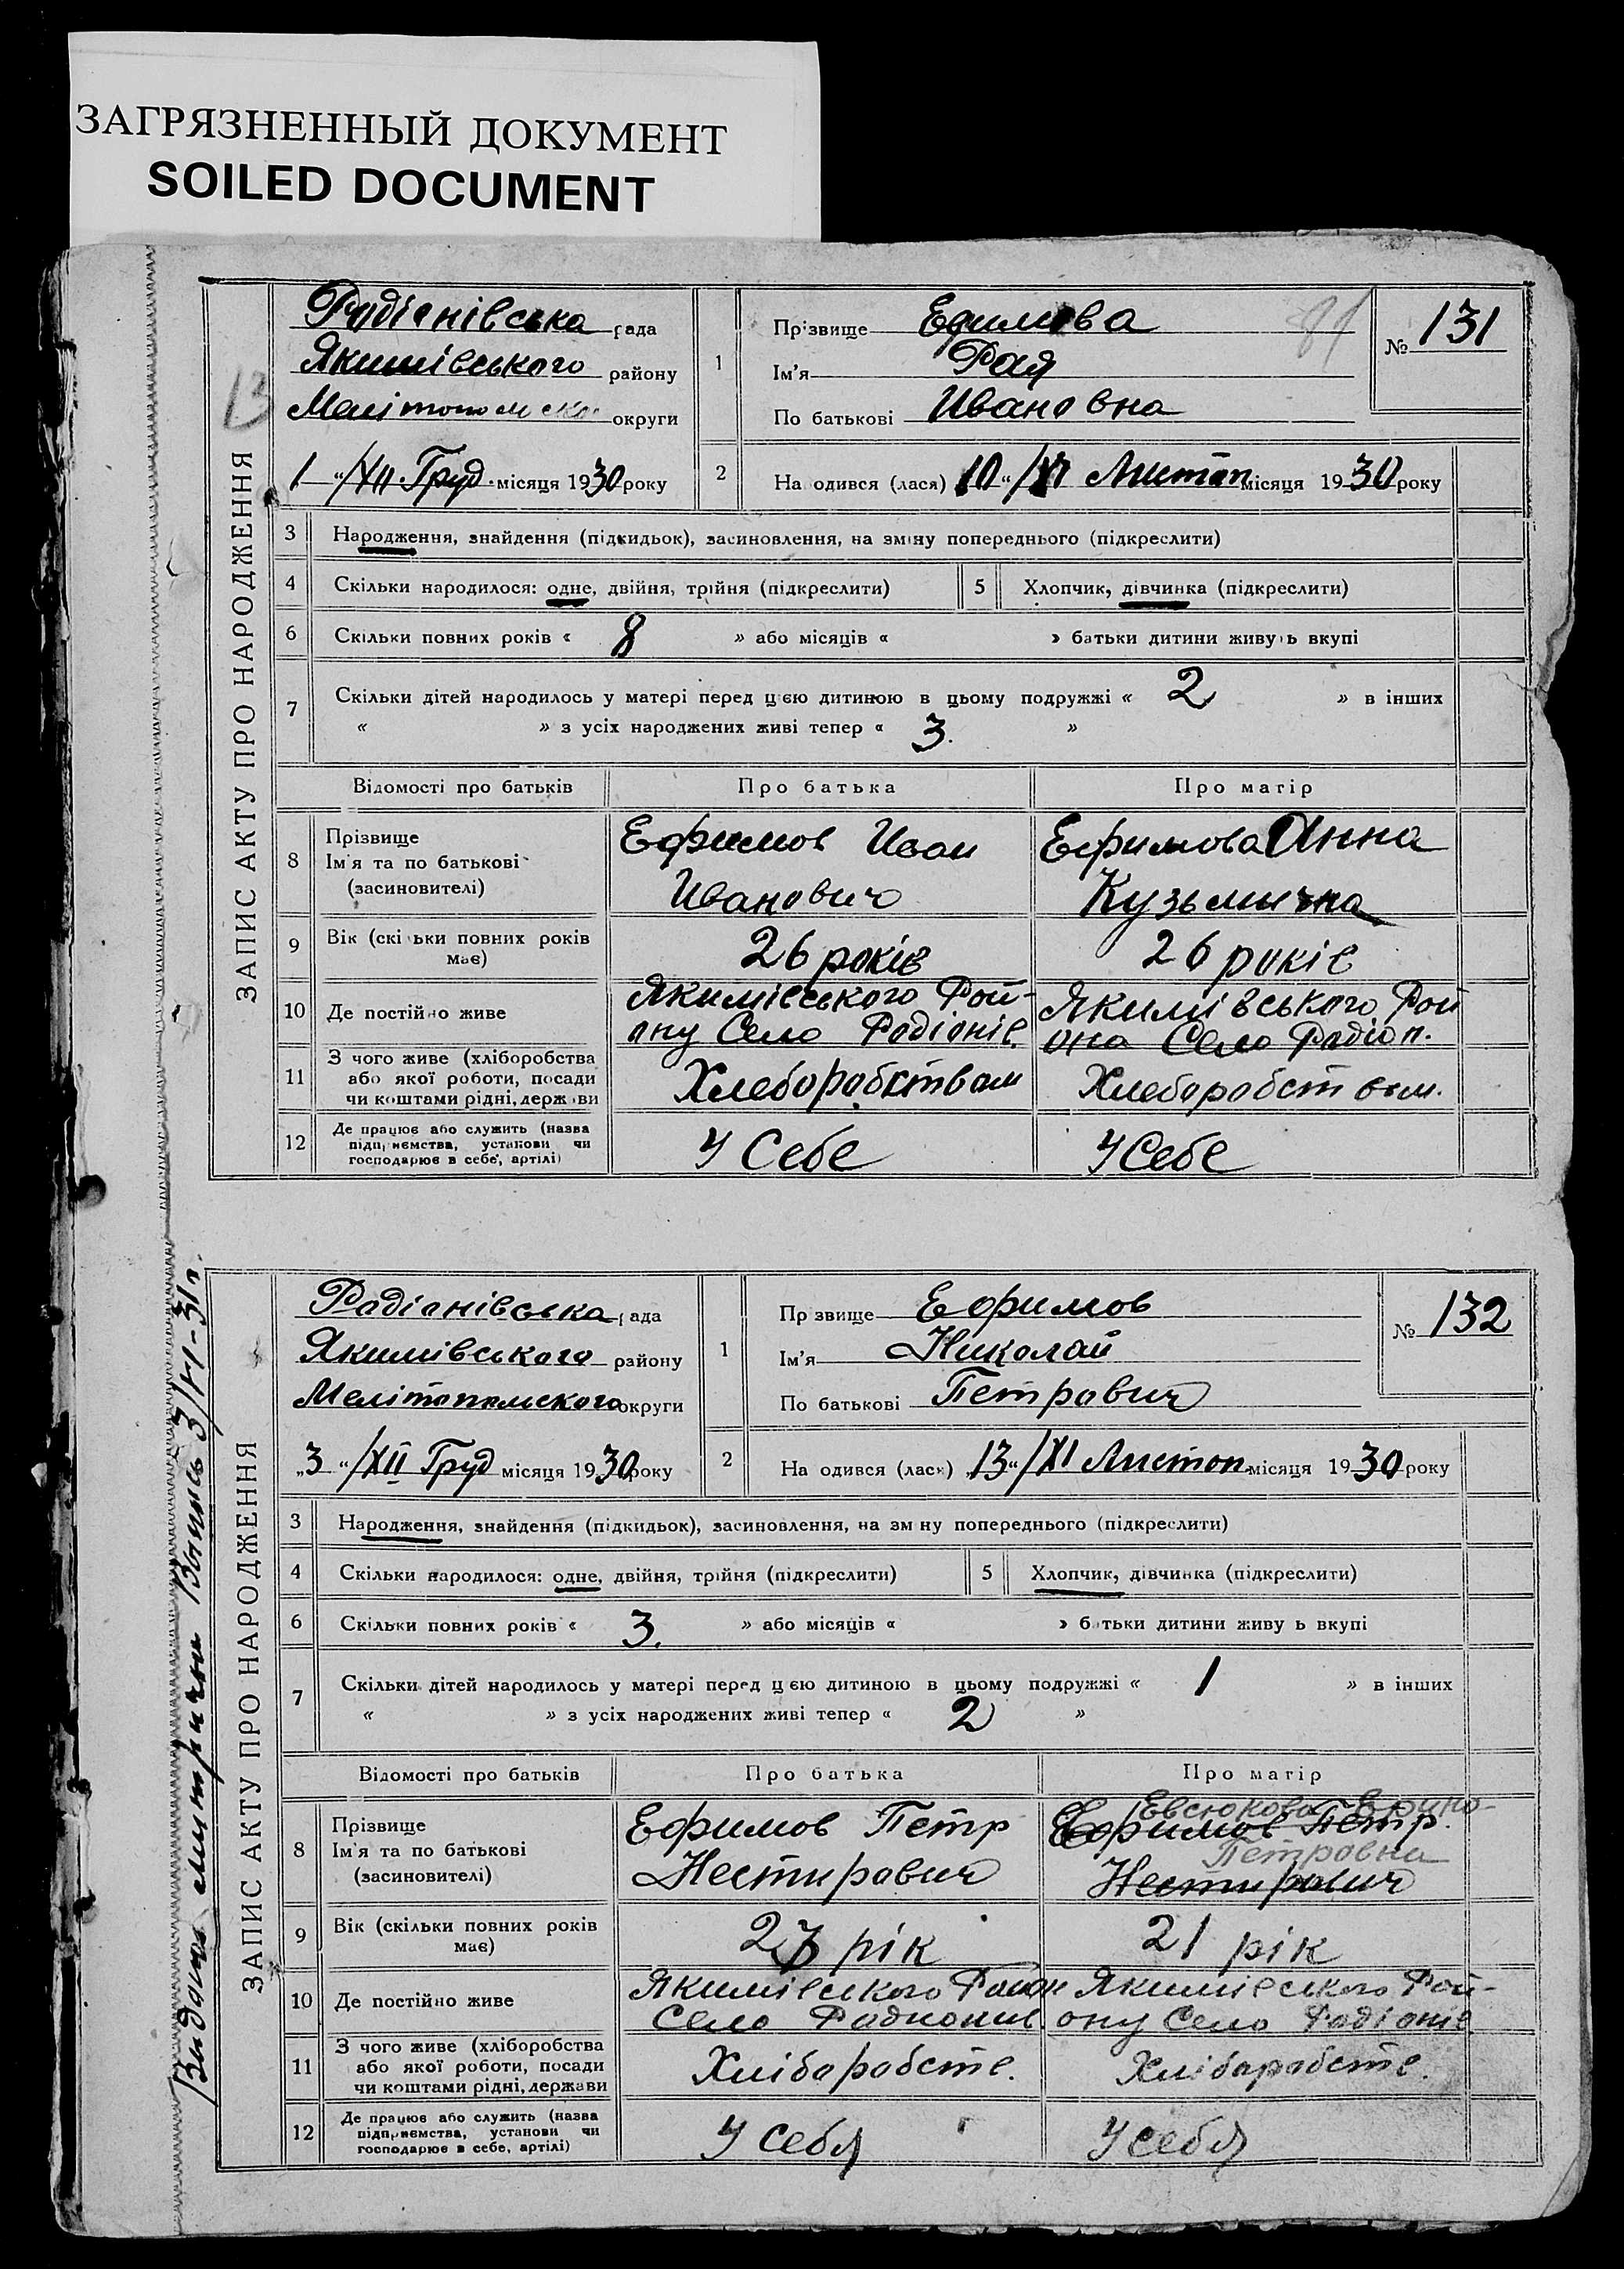 ЗАГРЯЗНЕННЫЙ ДОКУМЕНТ
SOILED DOCUMENT
ЗАПИС АКТУ ПРО НАРОДЖЕННЯ
13
Радіанівська рада
Якимівського району
округи
1 "/XII Груд. місяця 1930 року
1
Прізвище Ефимова
Ім'я Рая
По батькові Ивановна
№ 131
2 На одився (лася) 10"/XI Листоп місяця 1930 року
3 Народження, знайдення (підкидьок), засиновлення, на зміну попереднього (підкреслити)
4 Скільки народилося: одне, двійня, трійня (підкреслити) 5 Хлопчик, дівчинка (підкреслити)
6 Скільки повних років « 8 » або місяців « » батьки дитини живу ь вкупі
7 Скільки дітей народилось у матері перед цією дитиною в цьому подружжі « 2 » в інших
« » з усіх народжених живі тепер « 3. »
Відомості про батьків Про батька Про матір
8 Прізвище
Ім'я та по батькові
(засиновителі)
Ефимов Иван
Иванович
Ефимова Анна
Кузьминична
9 Вік (скі ьки повних років
має)
26 років
26 років
10 Де постійно живе
Якимівського Рай-
ону Село Радіонів.
Якимівського Рай
она Село Радіон.
11 З чого живе (хліборобства
або якої роботи, посади
чи коштами рідні, держави
Хлеборобством
Хлеборобством.
12 Де працює або служить (назва
підприємства, установи чи
господарює в себе, артілі)
У Себе
У Себе
Видана метричн Выпись 3/VI-31г.
ЗАПИС АКТУ ПРО НАРОДЖЕННЯ
Радіанівська рада
Якимівського району
Мелітопольского округи
„3"/XII Груд місяця 1930 року
1
Пр звище Ефимов
Ім'я Николай
По батькові Петрович
№ 132
2 На одився (лася) „13"/XI Листоп. місяця 1930 року
3 Народження, знайдення (підкидьок), засиновлення, на зм ну попереднього (підкреслити)
4 Скільки народилося: одне, двійня, трійня (підкреслити) 5 Хлопчик, дівчинка (підкреслити)
6 Скільки повних років « 3. » або місяців « » б тьки дитини живу ь вкупі
7 Скільки дітей народилось у матері перед цією дитиною в цьому подружжі « 1 » в інших
« » з усіх народжених живі тепер « 2 »
Відомості про батьків Про батька Про матір
8 Прізвище
Ім'я та по батькові
(засиновителі)
Ефимов Петр
Нестирович
Евсюкова
Ефимов Петр.
Петровна
Нестирович
9 Вік (скільки повних років
має)
рік
21 рік
10 Де постійно живе
Якимівського Район
Село Радионив.
Якимівського Рай-
ону Село Радіонів.
11 З чого живе (хліборобства
або якої роботи, посади
чи коштами рідні, держави
Хліборобств.
Хліборобств.
12 Де працює або служить (назва
підприємства, установи чи
господарює в себе, артілі)
У себя
У себя